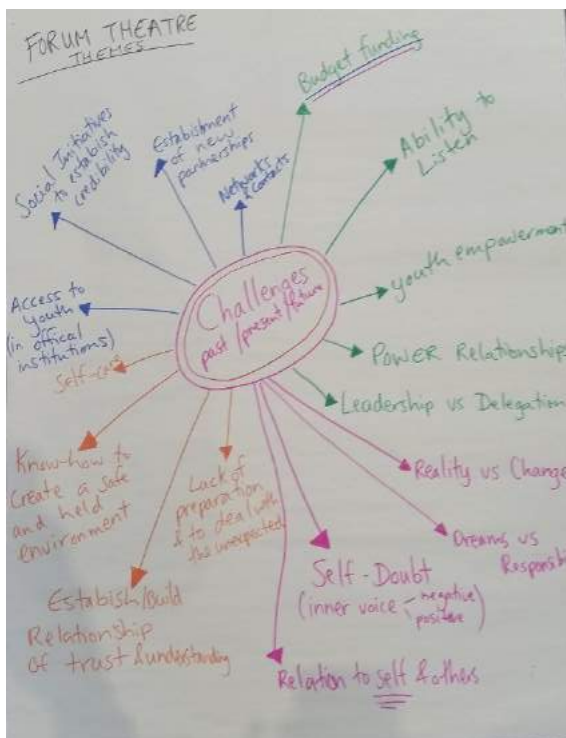 FORUM THEATRE
THEMES
Budget funding
Ability to
Listen
youth empowerment
POWER Relationships
Leadership vs Delegation
Reality vs Change
Dreams vs
Responsib
Self-Doubt
(inner voice negative
positive)
Relation to self & others
Lack of
preparation
& to deal with
the unexpected
Establish/Build
Relationship
of trust & understanding
Know-how to
create a safe
and held
environment
Self-care
Access to
youth
(in offical
institutions)
Social Initiatives
to establish
credibility
Establishment
of new
partnerships
Networks
& contacts
Challenges
past/present/future